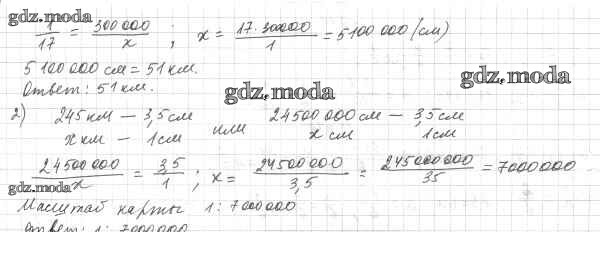 gdz.moda
1/17 = 300 000/x ; x = 17·300000/1 = 5100 000 (см)
5 100 000 см = 51 км.
gdz.moda
Ответ: 51 км.
gdz.moda
2) 245 км — 3,5 см или 24500 000 см — 3,5 см
x км — 1 см x см 1 см
24500 000/x = 3,5/1 ; x = 24500 000/3,5 = 245000000/35 = 7000000
gdz.moda
Масштаб карты 1: 7000000
Ответ: 1: 7000000